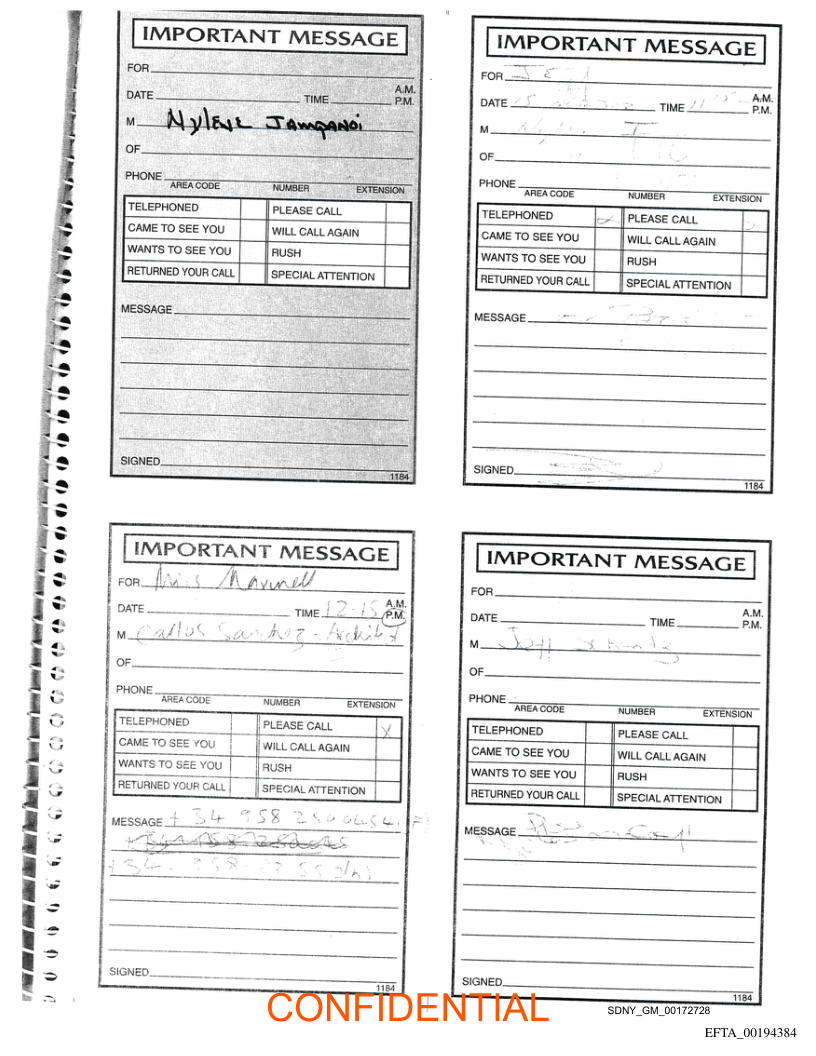 IMPORTANT MESSAGE
FOR
DATE TIME A.M. P.M.
M Nylene Jampanoi
OF
PHONE
AREA CODE NUMBER EXTENSION
TELEPHONED PLEASE CALL
CAME TO SEE YOU WILL CALL AGAIN
WANTS TO SEE YOU RUSH
RETURNED YOUR CALL SPECIAL ATTENTION
MESSAGE
SIGNED
1184
IMPORTANT MESSAGE
FOR
DATE 15 TIME A.M. P.M.
M
OF
PHONE
AREA CODE NUMBER EXTENSION
TELEPHONED PLEASE CALL
CAME TO SEE YOU WILL CALL AGAIN
WANTS TO SEE YOU RUSH
RETURNED YOUR CALL SPECIAL ATTENTION
MESSAGE
SIGNED
1184
IMPORTANT MESSAGE
FOR Miss
DATE TIME 12-15 A.M. P.M.
M Carlos Sanchez - Architect
OF
PHONE
AREA CODE NUMBER EXTENSION
TELEPHONED PLEASE CALL X
CAME TO SEE YOU WILL CALL AGAIN
WANTS TO SEE YOU RUSH
RETURNED YOUR CALL SPECIAL ATTENTION
MESSAGE + 34 958
+34 958
SIGNED
1184
IMPORTANT MESSAGE
FOR
DATE TIME A.M. P.M.
M Jeff
OF
PHONE
AREA CODE NUMBER EXTENSION
TELEPHONED PLEASE CALL
CAME TO SEE YOU WILL CALL AGAIN
WANTS TO SEE YOU RUSH
RETURNED YOUR CALL SPECIAL ATTENTION
MESSAGE
SIGNED
1184
CONFIDENTIAL
SDNY_GM_00172728
EFTA_00194384